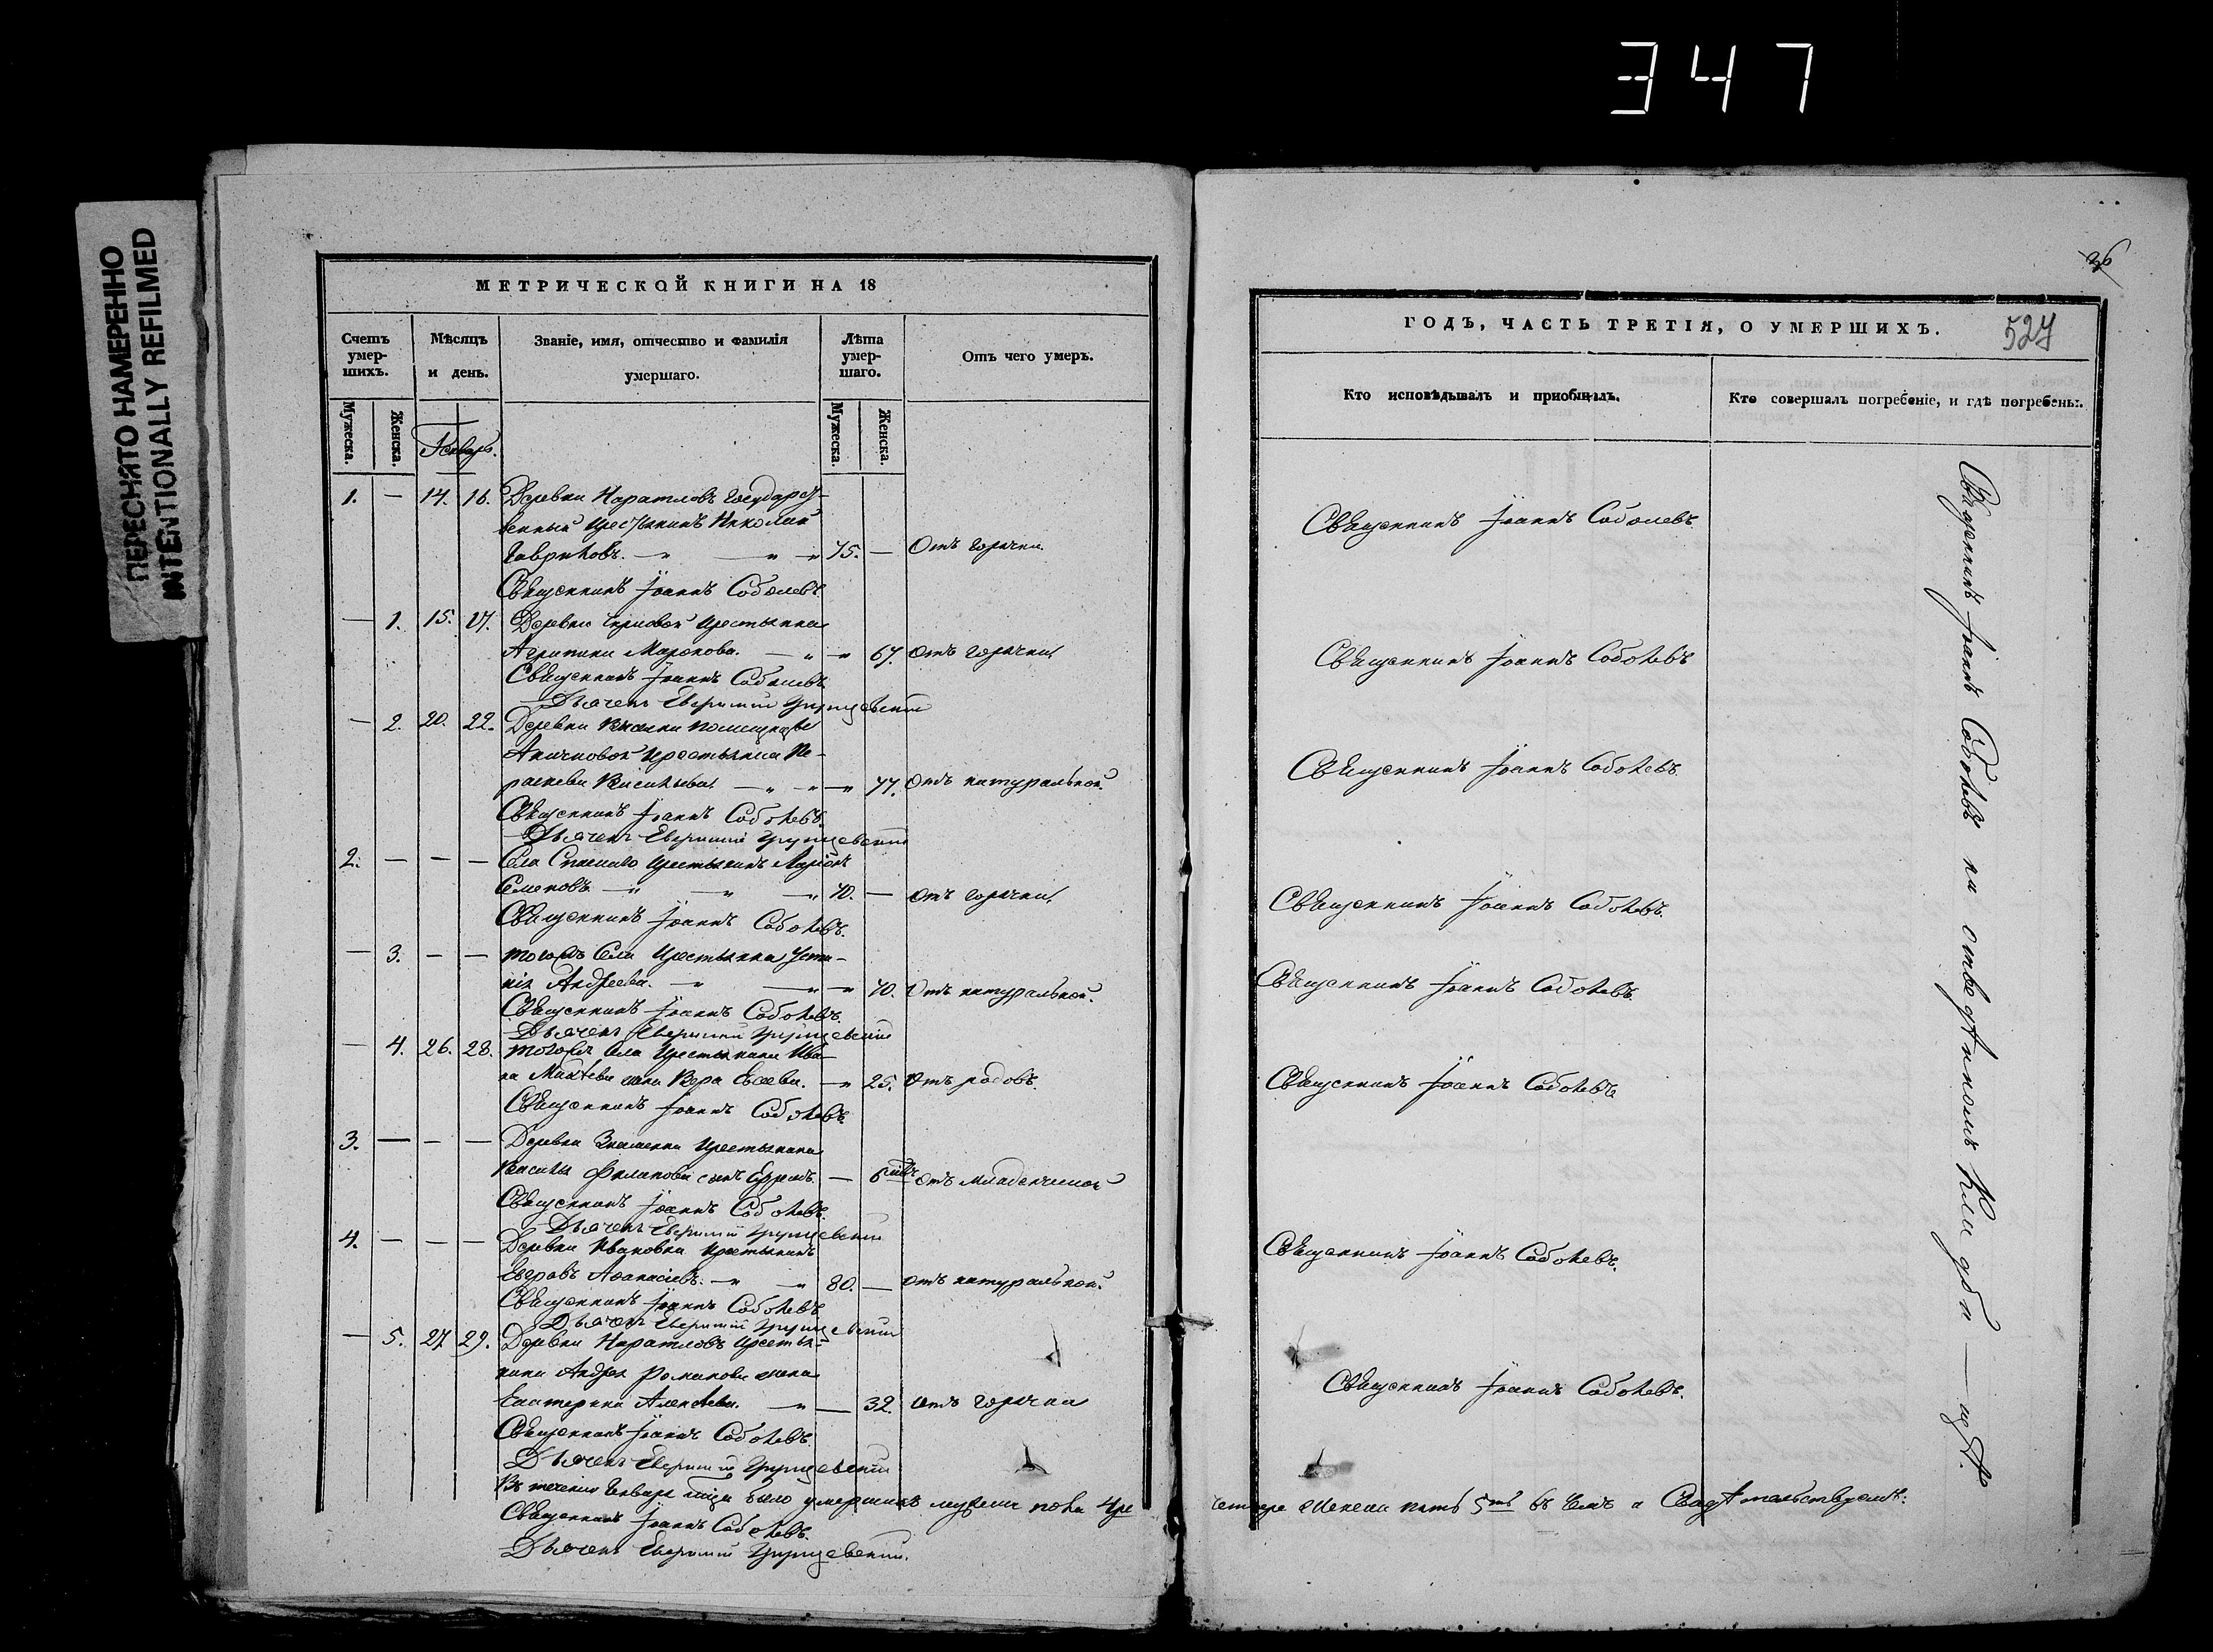 347
ПЕРЕСНЯТО НАМЕРЕННО
INTENTIONALLY REFILMED
МЕТРИЧЕСКОЙ КНИГИ НА 18
Счетъ умер- шихъ.
Мѣсяцъ и день.
Званіе, имя, отчество и фамилія умершаго.
Лѣта умер- шаго.
Отъ чего умеръ.
Мужеска. Женска. Январь. Мужеска. Женска.
1. — 14. 16. Деревни Каратловъ Государст-
венный крестьянинъ Николай
Гавриловъ. 75. — Отъ горячки.
Священникъ Іоаннъ Соболевъ.
— 1. 15. 17. Деревни крестьянка
Агрипина Маркова. 67. отъ горячки
Священникъ Іоаннъ Соболевъ
Дьячекъ
— 2. 20. 22. Деревни помещицы
Аничковой крестьянка Па-
раскева Васильева 77. Отъ натуральной.
Священникъ Іоаннъ Соболевъ.
Дьячекъ
2. — — — Села Спаскаго крестьянинъ Ларіонъ
Семеновъ 70. — отъ горячки
Священникъ Іоаннъ Соболевъ.
— 3. — — тогожъ Села крестьянка Усти-
нія Андреева. 70. Отъ натуральной.
Священникъ Іоаннъ Соболевъ.
Дьячекъ
— 4. 26. 28. тогожъ Села крестьянина Ива-
на жена Вера Евсеева. 25. Отъ родовъ.
Священникъ Іоаннъ Соболевъ.
3. — — — Деревни Знаменки крестьянина
Василья Филипова сынъ Ефремъ. — 6 отъ младенческой
Священникъ Іоаннъ Соболевъ.
Дьячекъ
4. — — — Деревни Ивановки крестьянинъ
Егоръ Афанасіевъ. 80. — отъ натуральной.
Священникъ Іоаннъ Соболевъ
Дьячекъ
— 5. 27 29. Деревни Каратловъ крестья-
нина Андрея Романова жена
Екатерина Алексеева. 32. отъ горячки
Священникъ Іоаннъ Соболевъ.
Дьячекъ
Въ теченіи Генваря было умершихъ мужеска пола 4ре
Священникъ Іоаннъ Соболевъ.
Дьячекъ
36
ГОДЪ, ЧАСТЬ ТРЕТІЯ, О УМЕРШИХЪ.
527
Кто исповѣдывалъ и приобщалъ.
Кто совершалъ погребеніе, и гдѣ погребены.
Священникъ Іоаннъ Соболевъ
Священникъ Іоаннъ Соболевъ
Священникъ Іоаннъ Соболевъ.
Священникъ Іоаннъ Соболевъ.
Священникъ Іоаннъ Соболевъ.
Священникъ Іоаннъ Соболевъ
Священникъ Іоаннъ Соболевъ.
Священникъ Іоаннъ Соболевъ.
Священникъ Іоаннъ Соболевъ на отведенномъ кладби — щѣ.
четыре женска пять 5ть въ чемъ и Свидѣтельствуемъ: